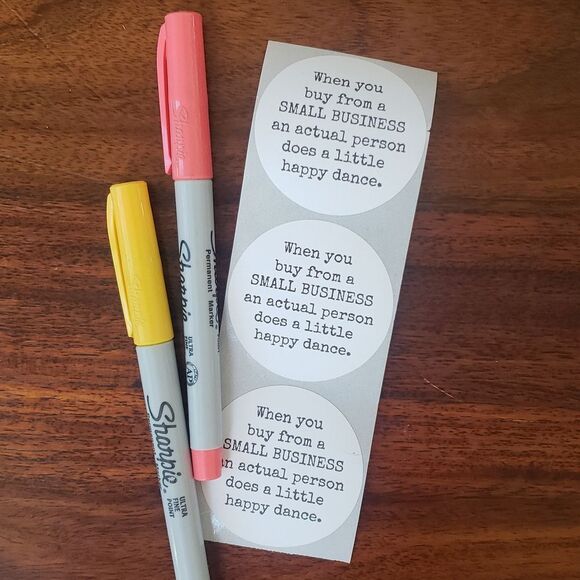 When you
buy from a
SMALL BUSINESS
an actual person
does a little
happy dance.
When you
buy from a
SMALL BUSINESS
an actual person
does a little
happy dance.
When you
buy from a
SMALL BUSINESS
an actual person
does a little
happy dance.
Sharpie
Permanent Marker
Sharpie
ULTRA
FINE
AP
Sharpie
Sharpie
ULTRA
FINE
POINT